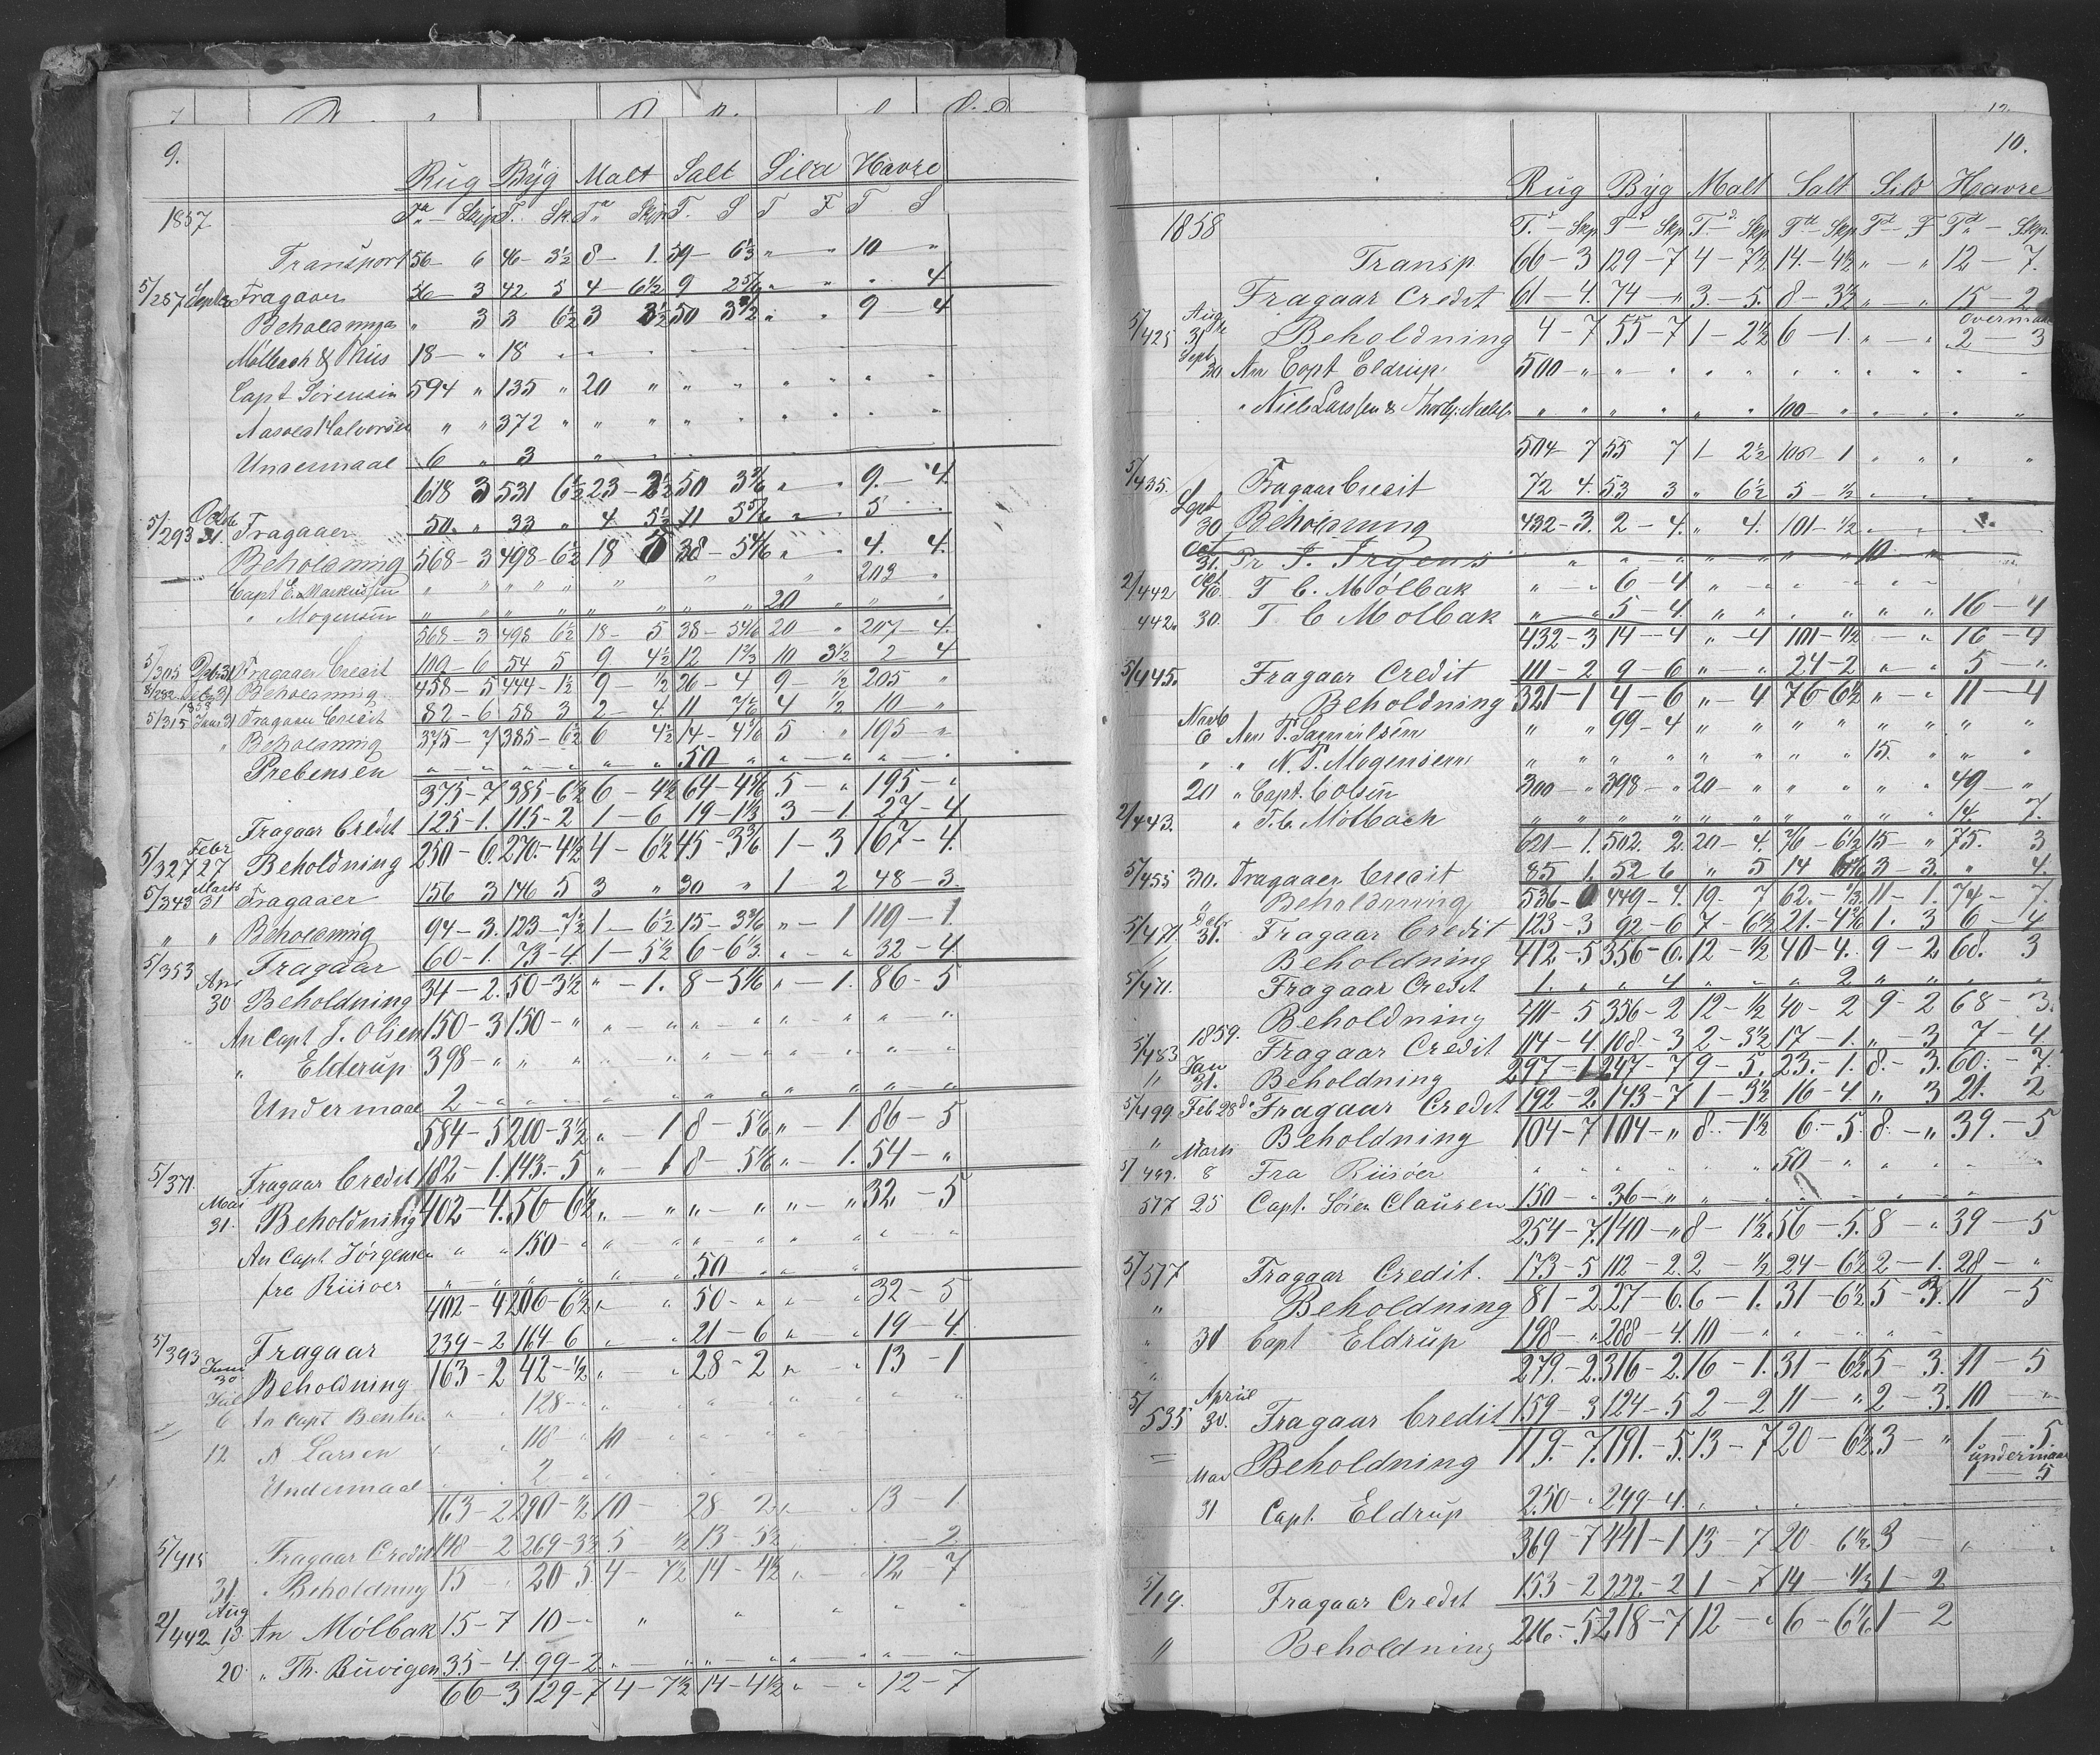 9.
Rug Byg Malt Salt Sild Havre
1857
Transport 56 - 6 46 - 3½ 8 - 1. 59 - 6⅓ " - " 10 "
5/257 Septb Fragaaer 56 - 3 42 5 4 - 6½ 9 2 5/6 " " " 4
Beholdninga " 3 3 6½ 3 2½ 50 3 3/6 " " 9 - 4
Mølbach & Riis 18 - " 18
Capt Sørensen 594 " 135 " 20
Aasold Halvorsen " " 372
Undermaal 6 " 3
618 3 531 6½ 23 - 2½ 50 3 3/6 " " 9. - 4.
5/293 Octb 31. Fragaaer 50. " 33 " 4. 5½ 11 5 5/6 " " 5
Beholdning 568 - 3 498 - 6½ 18 5 38 - 5 4/6 " " 4. 4.
Capt E. Markussen 203 "
" Mogensen 20
568 - 3 498 6½ 18 - 5 38 - 5 4/6 20 " 207 - 4.
5/305 31 Fragaaer Credit 119 - 6 54 5 9 4½ 12 1 2/3 10 3½ 2 4
8/282 31 Beholdning 458 - 5 444 - 1½ 9 ½ 26 - 4 9 - ½ 205 "
1858
5/315 Janr 31 Fragaaer Credit 82 - 6 58 3 2 - 4 11 4 ½ 10 "
" Beholdning 375 - 7 385 - 6½ 6 4½ 14 - 4 4/6 5 " 195 - "
Prebensen 50
375 - 7 385 - 6½ 6 - 4½ 64 - 4 4/6 5 - " 195 - "
Fragaar Credit 125 - 1. 115 - 2 1 - 6 19 - 1⅓ 3 - 1. 27 - 4
5/327 Febr 27 Beholdning 250 - 6. 270. - 4½ 4 - 6½ 45 - 3 3/6 1 - 3 167 - 4.
5/343 Marts 31 Fragaaer 156 3 146 5 3 " 30 " 1 - 2 48 - 3
" " Beholdning 94 - 3. 123 - 7½ 1 - 6½ 15 - 3 3/6 " - 1 119 - 1.
5/353 Fragaar 60 - 1. 73 - 4. 1 - 5½ 6 - 6⅓ " - " 32 - 4
Apr 30 Beholdning 34 - 2. 50 - 3½ " - 1. 8 - 5 1/6 " - 1. 86 - 5
An Capt J. Olsen 150 - 3 150 - "
" Elderup 398 - "
Undermaal 2
584 - 5 200 - 3½ " - 1 8 - 5 1/6 " - 1 86 - 5
5/371. Fragaar Credit 182 - 1. 143. - 5 " - 1 8 - 5 1/6 " - 1. 54 - "
Mai 31. Beholdning 402 - 4. 56 - 6½ " - " " - " " - " 32 - 5
An Capt Jørgensen " " 150
fra Riisøer 50
402 - 4 206 - 6½ " " 50 - " " - " 32 - 5
5/393 Fragaar 239 - 2 164 - 6 " - " 21 - 6 " - " 19 - 4
Juni 30 Beholdning 163 - 2 42 - ½ " - " 28 - 2 " - " 13 - 1
Juli 6 An Capt Bentsen " " 128
12 " Larsen 118 - " 10
Undermaal 2
163 - 2 290 - ½ 10 - 28 2 " " 13 - 1
5/415 Fragaar Credit 148 - 2 269 - 3½ 5 ½ 13 - 5½ 2
31. Beholdning 15 - " 20 - 5 4 - 7½ 14 - 4½ " - " 12 7
2/442 Aug 13 An Mølbak 15 - 7 10
20. " Th. Buvigen 35 - 4. 99 - 2
66 - 3 129 - 7 4 - 7½ 14 - 4½ " - " 12 - 7
10.
Rug Byg Malt Salt Sild Havre
1858
T. - Skp T - Skp T - Skp T - Skp T - F T - Skp
Transp 66 - 3 129 - 7 4 - 7½ 14. - 4½ " - " 12 - 7.
Fragaar Credit 61 - 4. 74 - " 3. - 5. 8 - 3½ " - " 15 - 2
overmaal
5/425 Aug 31 Beholdning 4 - 7 55 - 7 1 - 2½ 6 - 1. " - " 2 - 3
Sept 20 An Capt Eldrup 500
" Niels Larssen & 100
504 - 7 55 7 1 - 2½ 106 - 1
5/435. Fragaar Credit 72 4. 53 3 " 6½ 5 - ½
Sept 30 Beholdning 432 - 3. 2 - 4. " 4. 101 - ½
Oct 31. Pr J. Irgens 10
2/442 Oct T C. Mølbak " " 6 - 4
442. 30. T C Molbak " " 5 - 4. 16 - 4
432 - 3 14 - 4 " - 4 101 - ½ - " 16 - 4
5/445. Fragaar Credit 111 - 2 9 - 6 " " 24 - 2 " " 5 "
Beholdning 321 - 1 4 - 6 " - 4 76 - 6½ " - " 11 - 4
Novb 6 An T. Samuelsen " " 99 - 4
" " N. T. Mogensen 15
20 " Capt. Colsen 300 - " 398 - " 20 49 - "
2/443. " T. C. Mølbach 14. 7.
621 - 1. 502. 2. 20 - 4. 76 - 6½ 15 - " 75. 3
5/455 30. Fragaaer Credit 85 1. 52 6 " 5 14 3 - 3. " 4.
" Beholdning 536 - 0 449 - 4. 19. - 7 62. - ⅓ 11 - 1. 74 - 7.
5/471 31. Fragaar Credit 123 - 3 92 - 6 7 - 6½ 21 - 4 2/6 1. 3 6 - 4
Beholdning 412 - 5 356 - 6. 12 - ½ 40 - 4. 9 - 2 68. 3
5/471. Fragaar Credit 1. " " 4 " " " 2
Beholdning 411 - 5 356 - 2 12 - ½ 40 - 2 9 - 2 68 - 3.
1859.
5/483 Fragaar Credit 114 - 4 108 - 3 2 - 3½ 17 - 1. " 3 7 - 4
" Jan 31. Beholdning 297 - 1 247 - 7 9 - 5. 23. - 1. 8. - 3. 60. - 7.
5/499 Feb 28 Fragaar Credit 192 - 2. 143 - 7 1 - 3½ 16 - 4 " 3 21. 2
" Beholdning 104 - 7 104 - " 8. - 1½ 6. - 5. 8. - " 39. - 5
5/499. Marts 8 Fra Riisøer 50
517 25 Capt. Søren Clausen 150 - " 36
254 - 7. 140 - " 8 - 1½ 56 - 5. 8 - " 39 - 5
5/517 Fragaar Credit. 173 - 5 112 - 2. 2 - ½ 24 - 6½ 2 - 1. 28 - "
" Beholdning 81 - 2. 27 - 6. 6 - 1. 31 - 6½ 5 - 3. 11 - 5
" 31 Capt Eldrup 198 - " 288 - 4. 10
279. - 2. 316 - 2. 16 - 1. 31 - 6½ 5 - 3. 11 - 5
5/535 April 30. Fragaar Credit 159 - 3 124 - 5 2 - 2 11 - " 2 - 3. 10 - "
Beholdning 119. - 7. 191. - 5. 13 - 7 20 - 6½ 3 - " 1 - 5
undermaal
1 - 5
Mai 31 Capt. Eldrup 250 - " 249 - 4.
369 - 7 441 - 1 13 - 7 20 - 6½ 3
5/19. Fragaar Credit 153 - 2 222. - 2 1 - 7 14 - ⅓ 1 - 2
" Beholdning 216. - 5. 218 - 7 12 - " 6 - 6 1/6 1 - 2